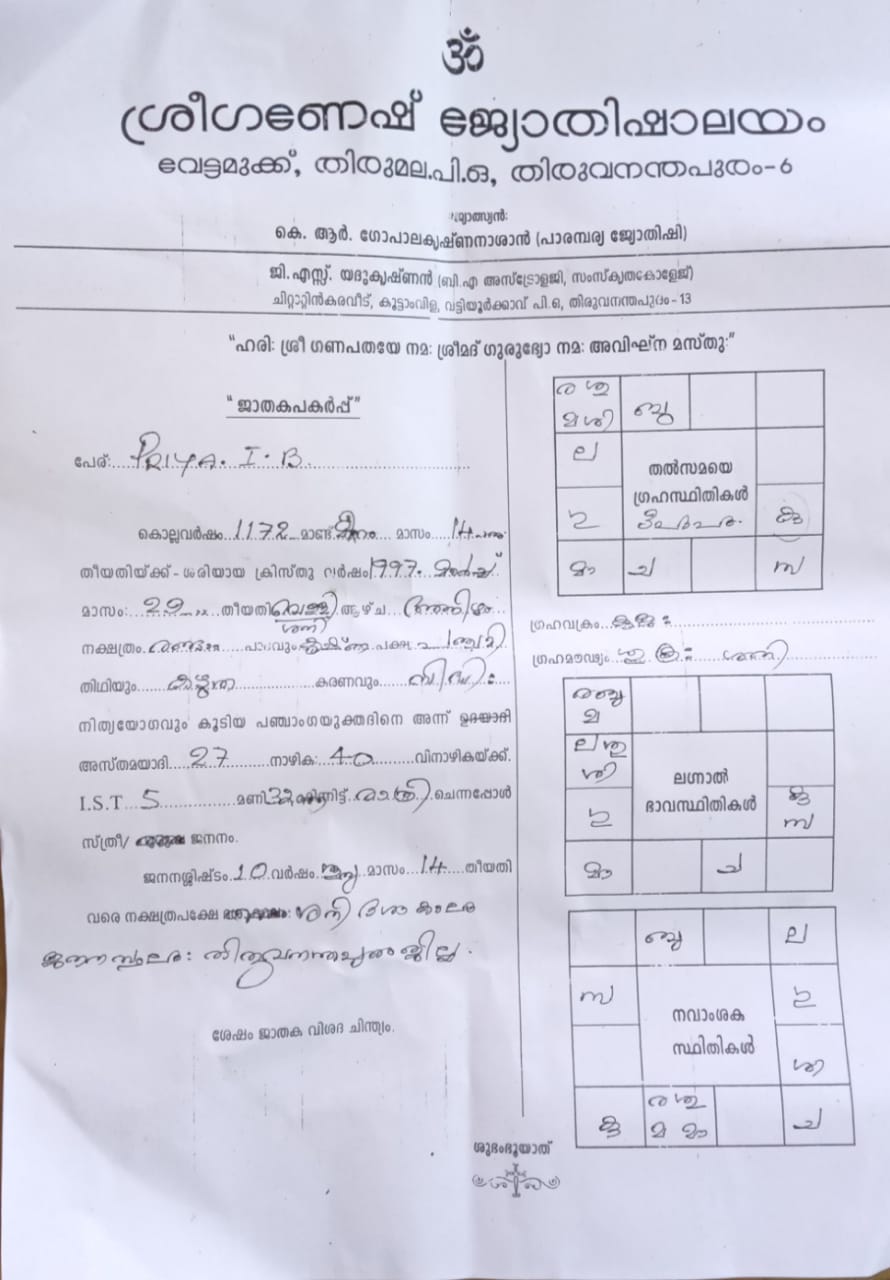 ॐ
ശ്രീഗണേഷ് ജ്യോതിഷാലയം
വേട്ടമുക്ക്, തിരുമല.പി.ഒ, തിരുവനന്തപുരം-6
ജ്യോത്സ്യൻ:
കെ. ആർ. ഗോപാലകൃഷ്ണനാശാൻ (പാരമ്പര്യ ജ്യോതിഷി)
ജി.എസ്സ്. യദുകൃഷ്ണൻ (ബി.എ അസ്ട്രോളജി, സംസ്കൃതകോളേജ്)
ചിറ്റാറ്റിൻകരവീട്, കൂട്ടാംവിള, വട്ടിയൂർക്കാവ് പി.ഒ, തിരുവനന്തപുരം-13
"ഹരി: ശ്രീ ഗണപതയേ നമ: ശ്രീമദ് ഗുരുഭ്യോ നമ: അവിഘ്ന മസ്തു:"
"ജാതകപകർപ്പ്"
പേര്: PRIYA. I. B
കൊല്ലവർഷം 1172 മാണ്ട് മീനം മാസം 14
തീയതിയ്ക്ക് - ശരിയായ ക്രിസ്തു വർഷം 1997 മാർച്ച്
മാസം: 29 തീയതി വെള്ളി ആഴ്ച അനിഴം
ശനി
നക്ഷത്രം പാദവും കൃഷ്ണ പക്ഷ പഞ്ചമി
തിഥിയും കരണവും സിദ്ധി:
നിത്യയോഗവും കൂടിയ പഞ്ചാംഗയുക്തദിനെ അന്ന് ഉദയാദി
അസ്തമയാദി 27 നാഴിക: 40 വിനാഴികയ്ക്ക്.
I.S.T 5 മണി 32 മിനിട്ട് രാത്രി ചെന്നപ്പോൾ
സ്ത്രീ/ ജനനം.
ജനനശ്ശിഷ്ടം 10 വർഷം മാസം 14 തീയതി
വരെ നക്ഷത്രപക്ഷേ ശനി ദശാ കാലം
ജനനസ്ഥലം: തിരുവനന്തപുരം ജില്ല.
ശേഷം ജാതക വിശദ ചിന്ത്യം.
ര ശു
മ ശി ബു
ല
തൽസമയെ
ഗ്രഹസ്ഥിതികൾ
കു
മാ ച സ
ഗ്രഹവക്രം കുജ:
ഗ്രഹമൗഢ്യം ശുക്ര: ശനി
ര ബു
മ
ല ശു
ശി
ലഗ്നാൽ
ഭാവസ്ഥിതികൾ
കു
സ
മാ ച
ബു ല
സ
നവാംശക
സ്ഥിതികൾ
ശി
കു ര ശു
മ മാ ച
ശുഭംഭൂയാത്